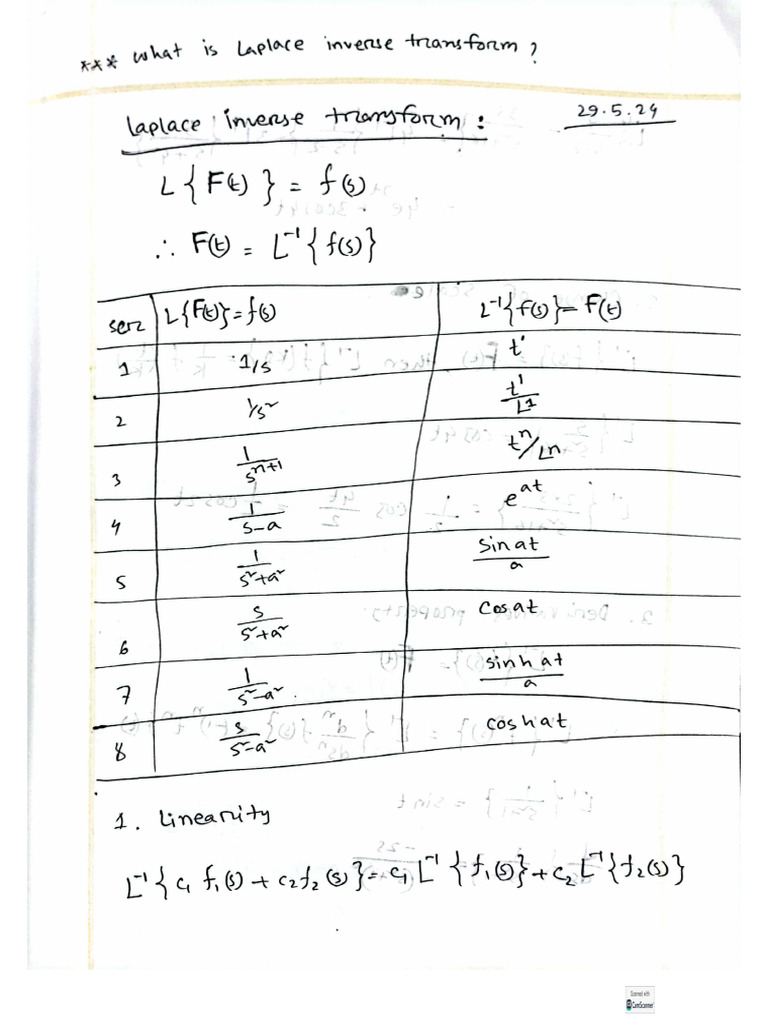 *** What is Laplace inverse transform?
Laplace inverse transform: 29.5.24
L{F(t)} = f(s)
∴ F(t) = L⁻¹{f(s)}
L{F(t)} = f(s) L⁻¹{f(s)} = F(t)
1 1/s
2 1/s² t¹/∟1
3 1/sⁿ⁺¹ tⁿ/∟n
4 1/s-a e^at
5 1/s²+a² sin at/a
6 s/s²+a² cos at
7 1/s²-a². sinh at/a
8 s/s²-a² cosh at
1. Linearity
L⁻¹{c₁ f₁(s) + c₂f₂(s)} = c₁ L⁻¹{f₁(s)} + c₂ L⁻¹{f₂(s)}
Scanned with
CamScanner